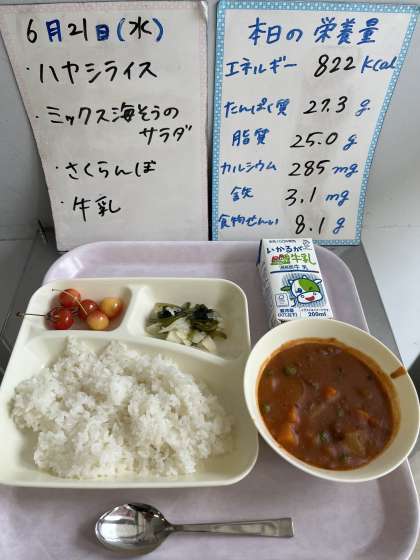 6月21日(水)
・ハヤシライス
・ミックス海そうの
サラダ
・さくらんぼ
・牛乳
本日の栄養量
エネルギー 822 Kcal
たんぱく質 27.3 g
脂質 25.0 g
カルシウム 285 mg
鉄 3.1 mg
食物せんい 8.1 g
いかるが
牛乳
200ml